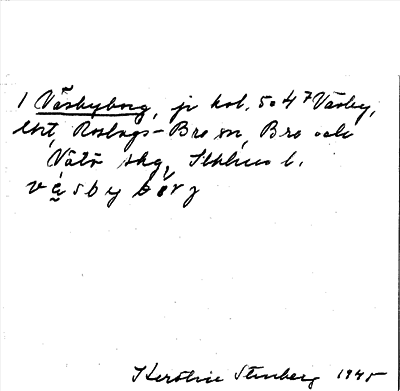 1 Väsbyborg, jr kol. 50 4⁷ Väsby,
Roslags-Bro sn, Bro och
Vätö skg, Sthlms l.
väsbybọrj
Kerstin Stenberg 1945